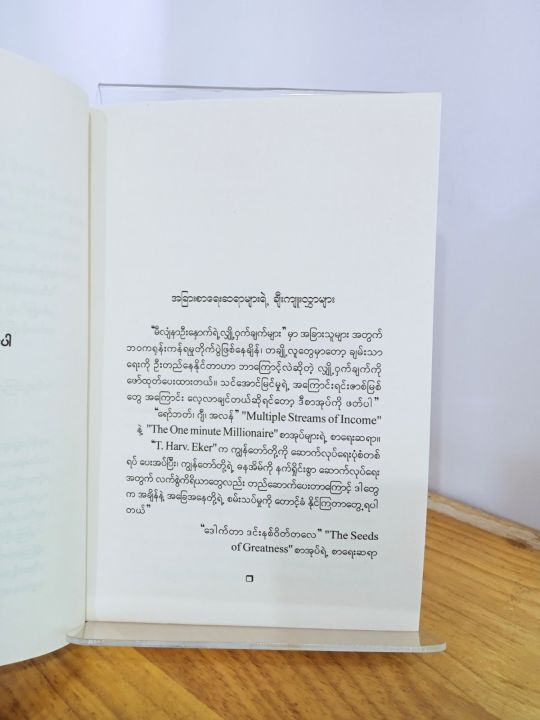 ပါ
အခြားစာရေးဆရာများရဲ့ ချီးကျူးလွှာများ
“မီလျံနာဦးနှောက်ရဲ့လျှို့ဝှက်ချက်များ” မှာ အခြားသူများ အတွက်
ဘဝကရုန်းကန်ရမှုတိုက်ပွဲဖြစ်နေချိန်၊ တချို့လူတွေမှာတော့ ချမ်းသာ
ရေးကို ဦးတည်နေနိုင်တာဟာ ဘာကြောင့်လဲဆိုတဲ့ လျှို့ဝှက်ချက်ကို
ဖော်ထုတ်ပေးထားတယ်။ သင်အောင်မြင်မှုရဲ့ အကြောင်းရင်းဇာစ်မြစ်
တွေ အကြောင်း လေ့လာချင်တယ်ဆိုရင်တော့ ဒီစာအုပ်ကို ဖတ်ပါ”
“ရော်ဘတ်၊ ဂျီ၊ အလန်” "Multiple Streams of Income"
နဲ့ "The One minute Millionaire" စာအုပ်များရဲ့ စာရေးဆရာ။
“T. Harv. Eker” က ကျွန်တော်တို့ကို ဆောက်လုပ်ရေးပုံစံတစ်
ရပ် ပေးအပ်ပြီး၊ ကျွန်တော်တို့ရဲ့ ဓနအိမ်ကို နက်ရှိုင်းစွာ ဆောက်လုပ်ရေး
အတွက် လက်စွဲကိရိယာတွေလည်း တည်ဆောက်ပေးတာကြောင့် ဒါတွေ
က အချိန်နဲ့ အခြေအနေတို့ရဲ့ စမ်းသပ်မှုကို တောင့်ခံ နိုင်ကြတာတွေ့ရပါ
တယ်”
“ဒေါက်တာ ဒင်းနစ်ဝိတ်တလေ” "The Seeds
of Greatness" စာအုပ်ရဲ့ စာရေးဆရာ